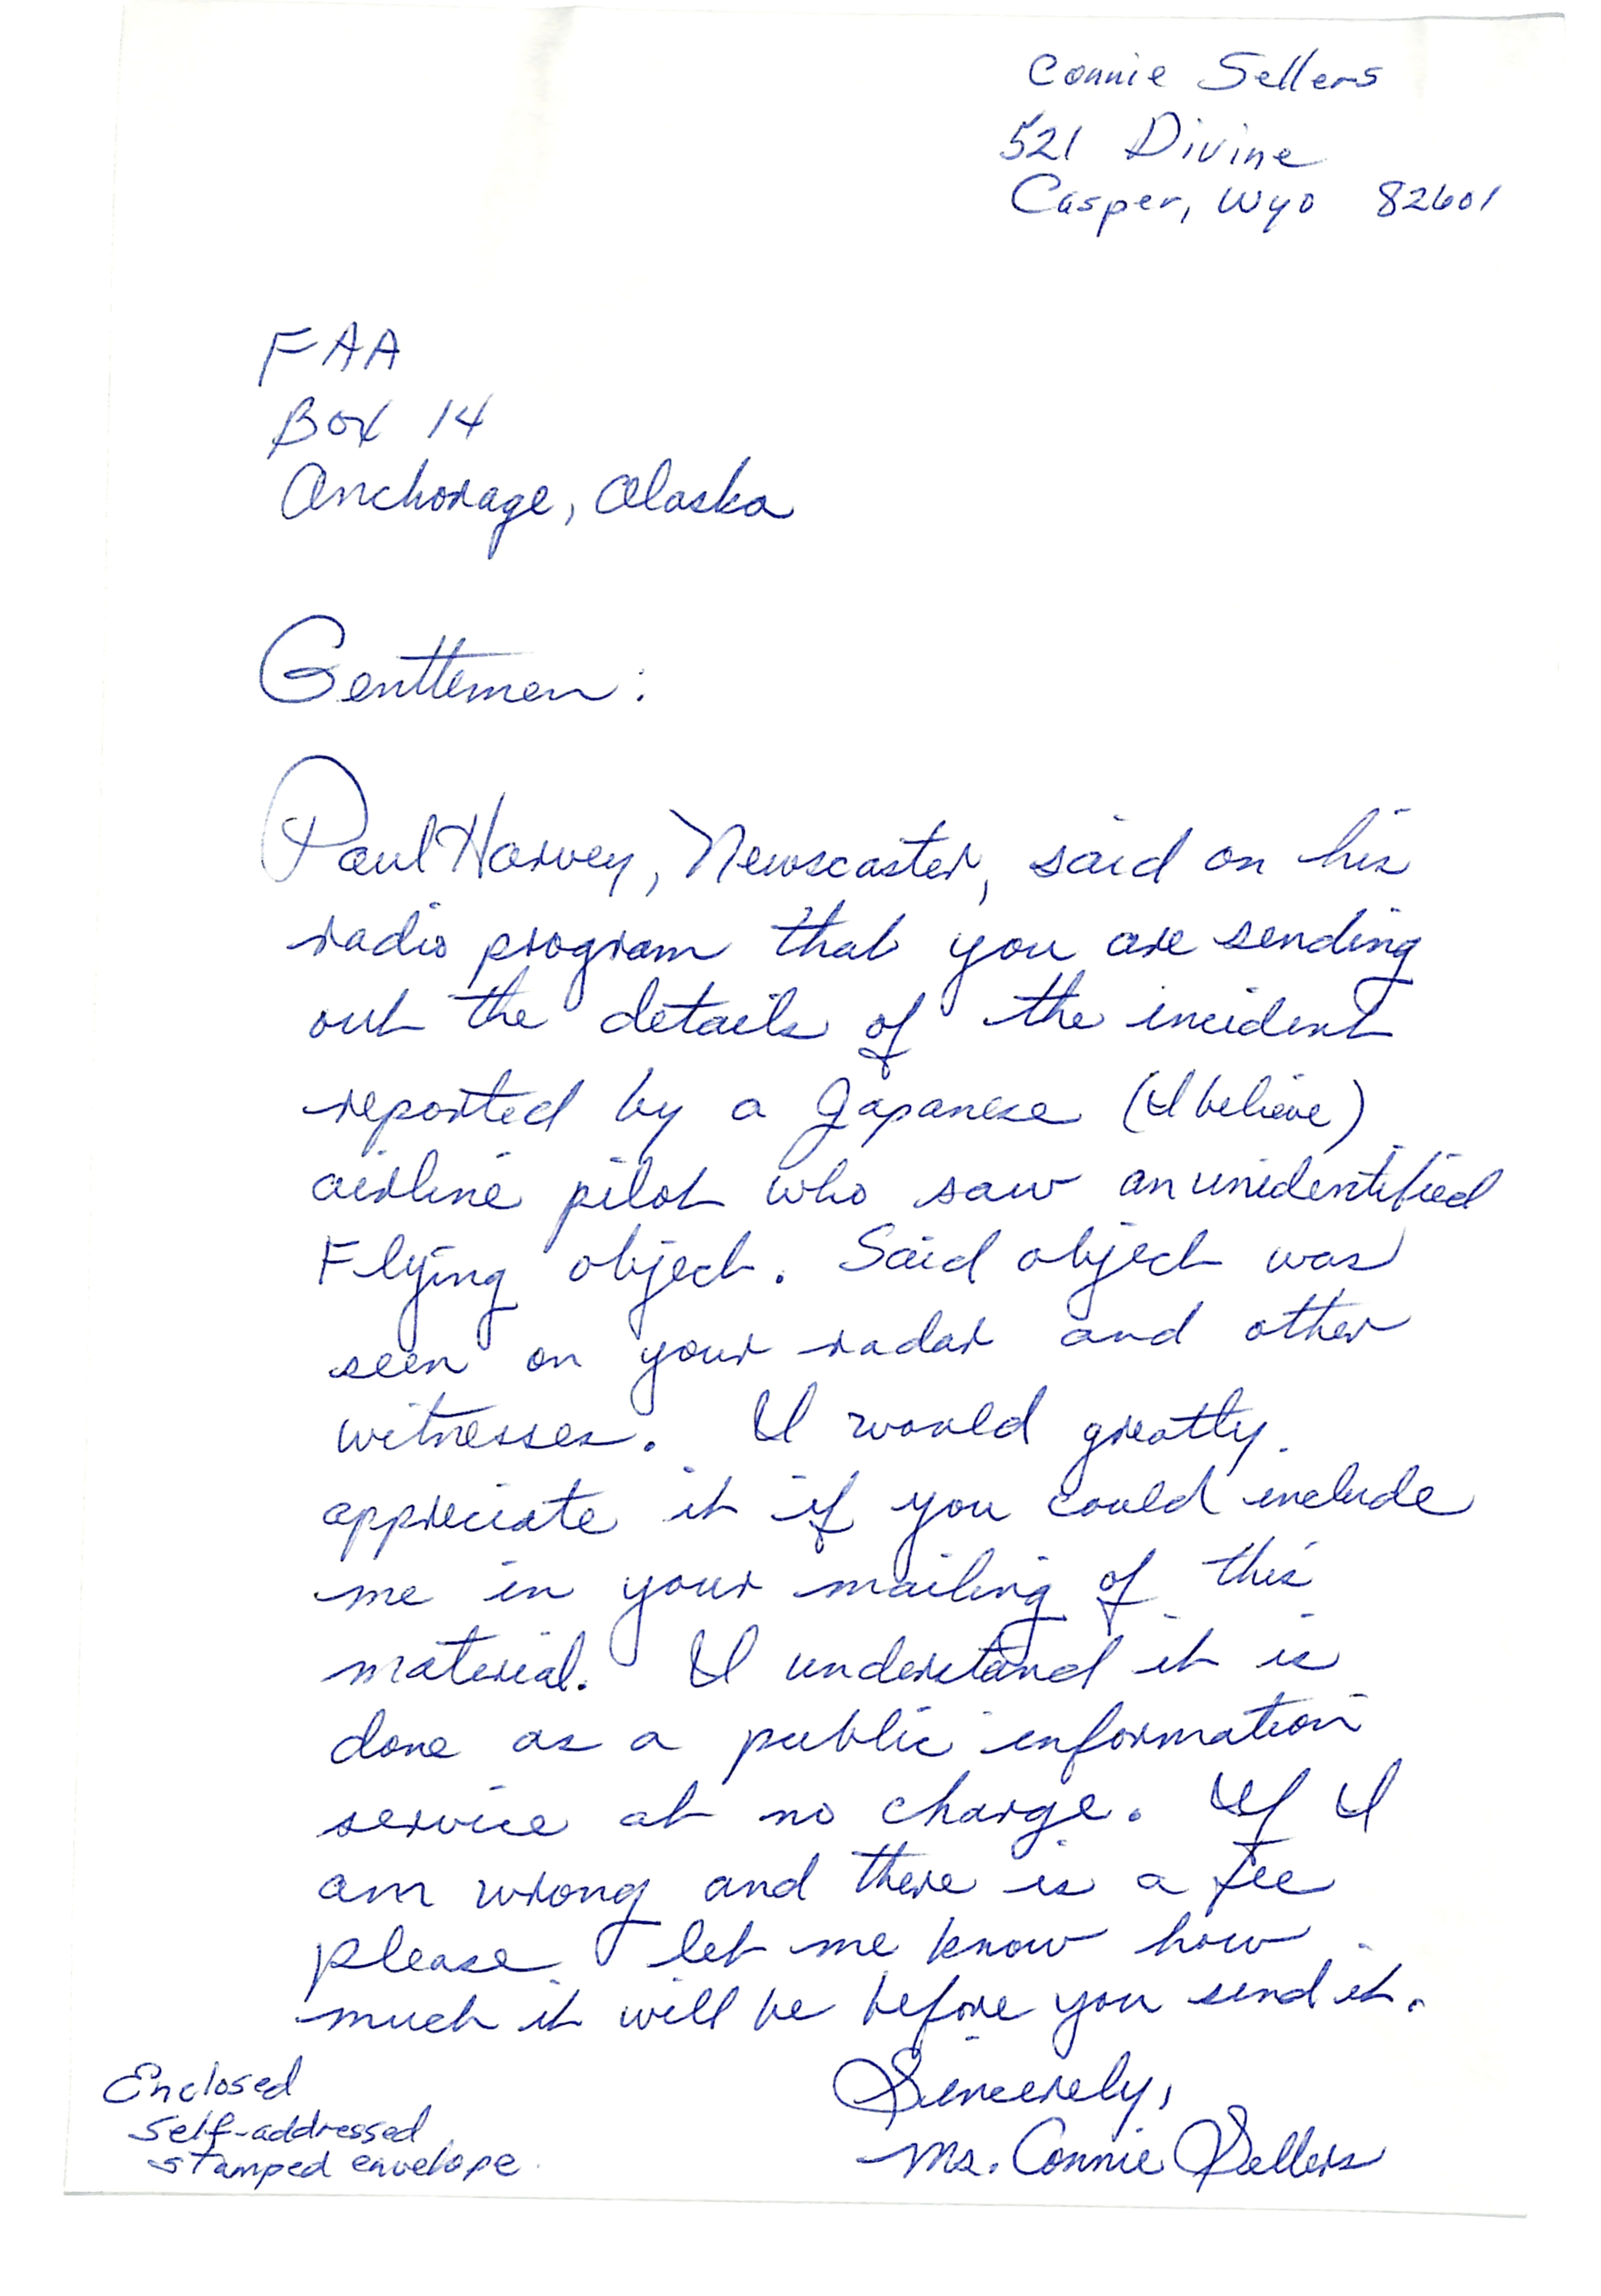 Connie Sellers
521 Divine
Casper, Wyo 82601
FAA
Box 14
Anchorage, Alaska
Gentlemen:
Paul Harvey, Newscaster, said on his
radio program that you are sending
out the details of the incident
reported by a Japanese (I believe)
airline pilot who saw an unidentified
Flying object. Said object was
seen on your radar and other
witnesses. I would greatly
appreciate it if you could include
me in your mailing of this
material. I understand it is
done as a public information
service at no charge. If I
am wrong and there is a fee
please let me know how
much it will be before you send it.
Sincerely,
Ms. Connie Sellers
Enclosed
self-addressed
stamped envelope.